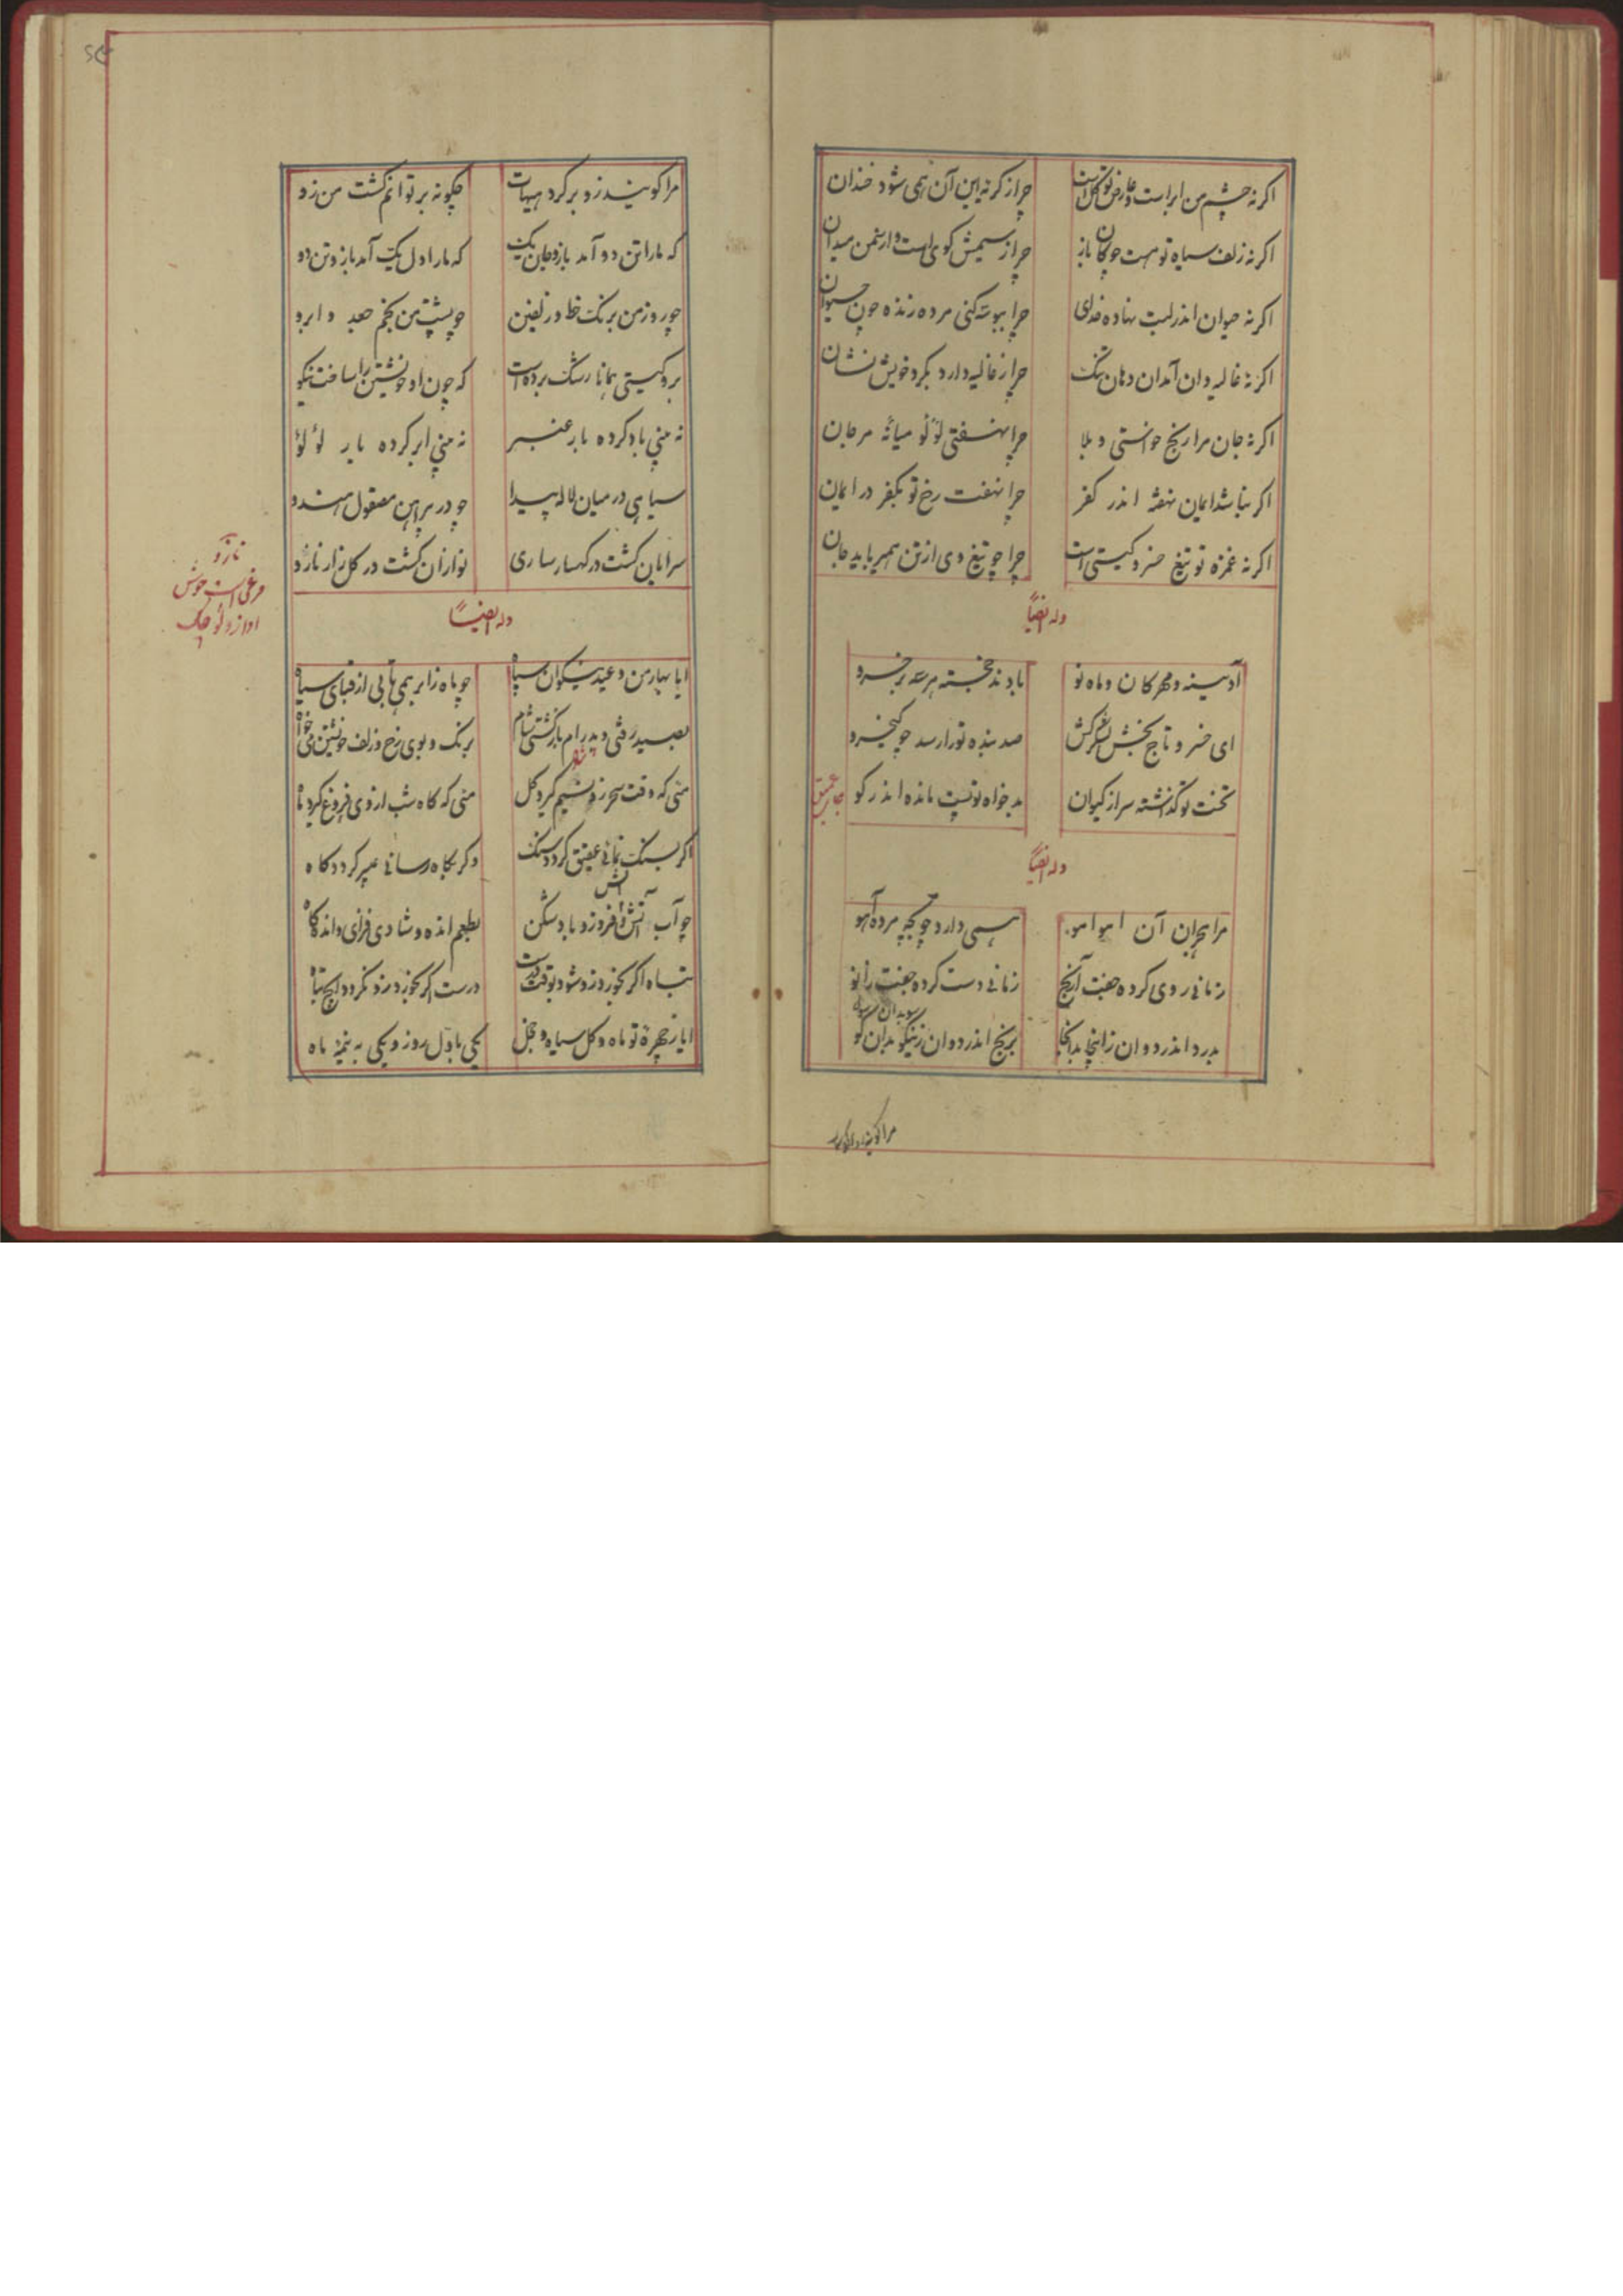 اکر نه چشم من ابر است و عارض تو کل است
چرا ز کریه این آن همی شود خندان
اکر نه زلف سیاه تو هست چوکان باز
چرا ز سیمش کوی است و از سمن میدان
اکر نه حیوان اندر لبت نهاده خدای
چرا ببوسه کنی مرده زنده چون حیوان
اکر نه غالیه دان آمد ان دهان تنک
چرا ز غالیه دارد بکرد خویش نشان
اکر نه جان مرا رنج خواستی و بلا
چرا نهفتی لؤلؤ میانه مرجان
اکر نباشد ایمان نهفته اندر کفر
چرا نهفت رخ تو بکفر در ایمان
اکر نه غمزه تو تیغ خسرو کیتی است
چرا چو تیغ وی از تن همی رباید جان
وله ایضاً
آدینه و مهرکان و ماه نو
بادند خجسته هر سه بر خسرو
ای خسرو تاج بخش لشکرکش
صد بنده تو را رسد چو کیخسرو
تخت تو کذشته سر از کیوان
بدخواه تو پست مانده اندر کو
وله ایضاً
مرا هجران آن آهو
همی دارد چو بچه مرده آهو
زمانی روی کرده جفت آرنج
زمانی دست کرده جفت زانو
بدرد اندر دوان زاینجا بدانجا
برنج اندر دوان زینکو بدان کو
مرا کویند
مرا کویند زو بر کرد هیهات
چکونه بر توانم کشت من زو
که ما را تن دو آمد باز و جان یک
که ما را دل یک آمد باز و تن دو
چو روز من برنک خط و زلفین
چو پشت من بخم جعد و ابرو
برو کیتی همانا رشک برده است
که چون او خویشتن را ساخت نیکو
نه منی باد کرده بار عنبر
نه منی ابر کرده بار لؤلؤ
سیاهی در میان لاله پیدا
چو در پیراهن مصقول هندو
سرایان کشت در کهسار ساری
نوازان کشت در کلزار نازو
نازو
مرغی است خوش
اواز و کوچک
وله ایضاً
ایا بهار من و عید نیکوان سپاه
چو ماه ز ابر همی تابی از قبای سیاه
بصید رفتی و پدرام بازکشتی شام
برنک و بوی رخ و زلف خویشتن می خواه
میی که وقت سحر زو نسیم کیرد کل
میی که کاه شب از وی فروغ کیرد ماه
اکر بسنک نمائی عقیق کردد سنک
وکر بکاه رسانی عبیر کردد کاه
چو آب آتش افروز و باد شکن
بطبع انده و شادی فزای و انده کاه
تباه اکر بخورد زو شود بوقت درست
درست اکر بخورد زو نکردد ایچ تباه
ایا ز چهره تو ماه و کل سیاه و خجل
یکی باول روز و یکی به نیمه ماه